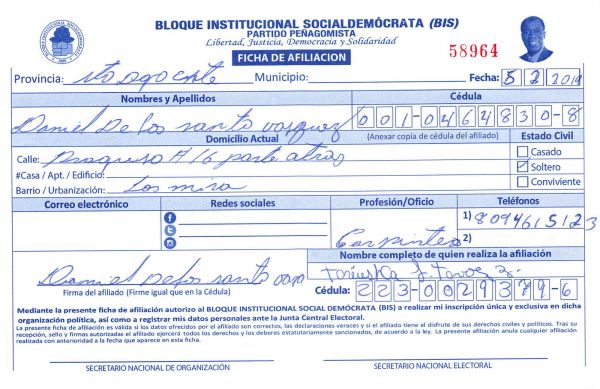 BLOQUE INSTITUCIONAL SOCIALDEMÓCRATA (BIS)
PARTIDO PEÑAGOMISTA
Libertad, Justicia, Democracia y Solidaridad
FICHA DE AFILIACION
58964
Provincia: Municipio: Fecha: 5 2 2019
Nombres y Apellidos Cédula
Daniel De los santo vasquez 001-0464830-8
Domicilio Actual (Anexar copia de cédula del afiliado) Estado Civil
Calle: Progreso # 16 parte atras Casado
#Casa / Apt. / Edificio: Soltero
Barrio / Urbanización: Los mira Conviviente
Correo electrónico Redes sociales Profesión/Oficio Teléfonos
1) 8094615123
Carpintero 2)
Nombre completo de quien realiza la afiliación
Daniel De los santo
Firma del afiliado (Firme igual que en la Cédula) Cédula: 223-0029379-6
Mediante la presente ficha de afiliación autorizo al BLOQUE INSTITUCIONAL SOCIAL DEMÓCRATA (BIS) a realizar mi inscripción única y exclusiva en dicha
organización política, así como a registrar mis datos personales ante la Junta Central Electoral.
La presente ficha de afiliación es válida si los datos ofrecidos por el afiliado son correctos, las declaraciones veraces y si el afiliado tiene el disfrute de sus derechos civiles y políticos. Tras su
recepción, sello y firmas autorizadas el afiliado ejercerá todos los derechos y los deberes estatutariamente sancionados, de acuerdo a la ley. La presente afiliación anula cualquier afiliación
realizada con anterioridad a la fecha que aparece en esta ficha.
SECRETARIO NACIONAL DE ORGANIZACIÓN SECRETARIO NACIONAL ELECTORAL